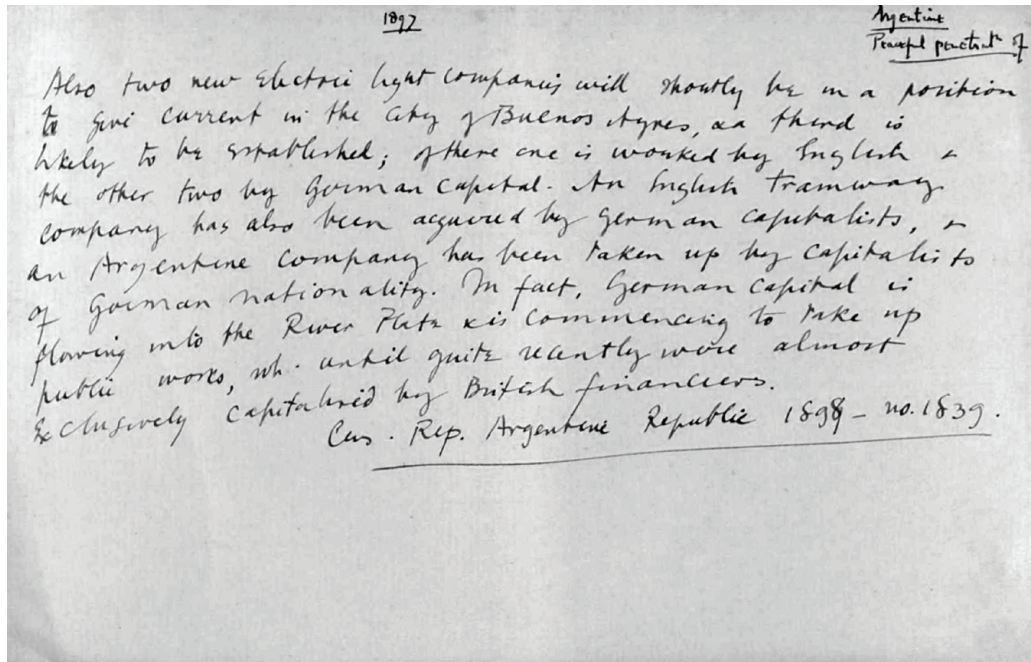 1897
Argentine
Peaceful penetratn of
Also two new Electric light companies will shortly be in a position
to give current in the City of Buenos Ayres, & a third is
likely to be established; of these one is worked by English &
the other two by German capital. An English Tramway
company has also been acquired by German capitalists, &
an Argentine company has been taken up by capitalists
of German nationality. In fact, German capital is
flowing into the River Plate & is commencing to take up
public works, wh. until quite recently were almost
Exclusively capitalised by British financiers.
Cons. Rep. Argentine Republic 1898 – no. 1839.